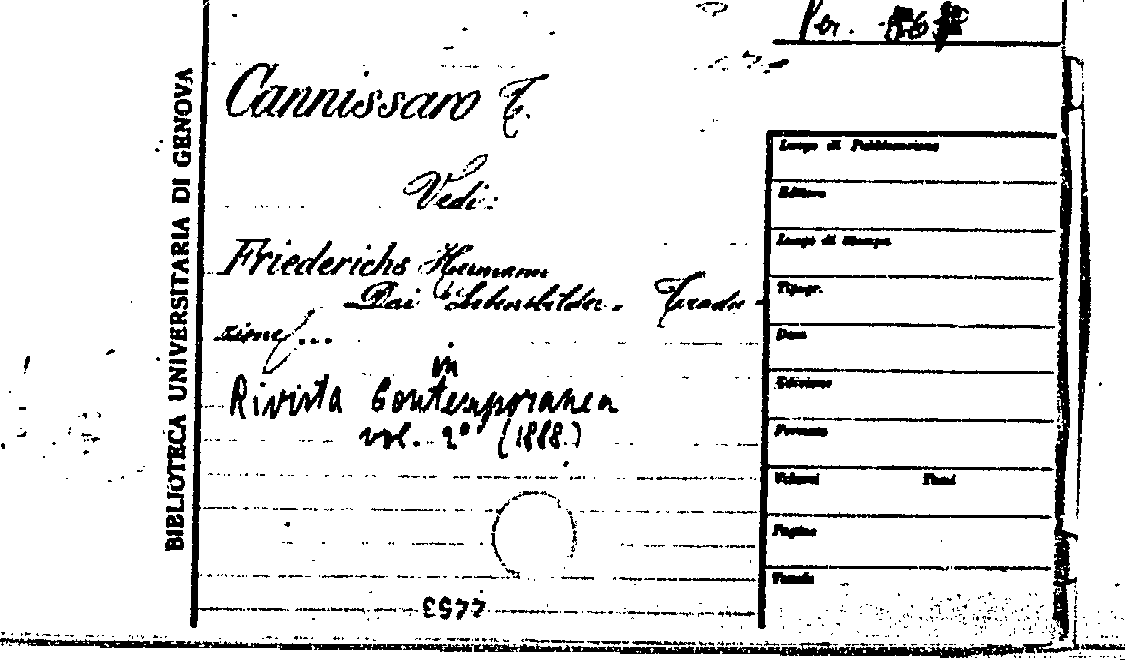 Per.
Cannissaro T.
Vedi:
Friederichs Hermann
Dai "Lebensbilder". Tradu-
zione...
in
Rivista Contemporanea
vol. 2º (1888)
BIBLIOTECA UNIVERSITARIA DI GENOVA
Luogo di Pubblicazione
Editore
Luogo di Stampa
Tipogr.
Data
Edizione
Formato
Volumi Tomi
Pagine
Tavole